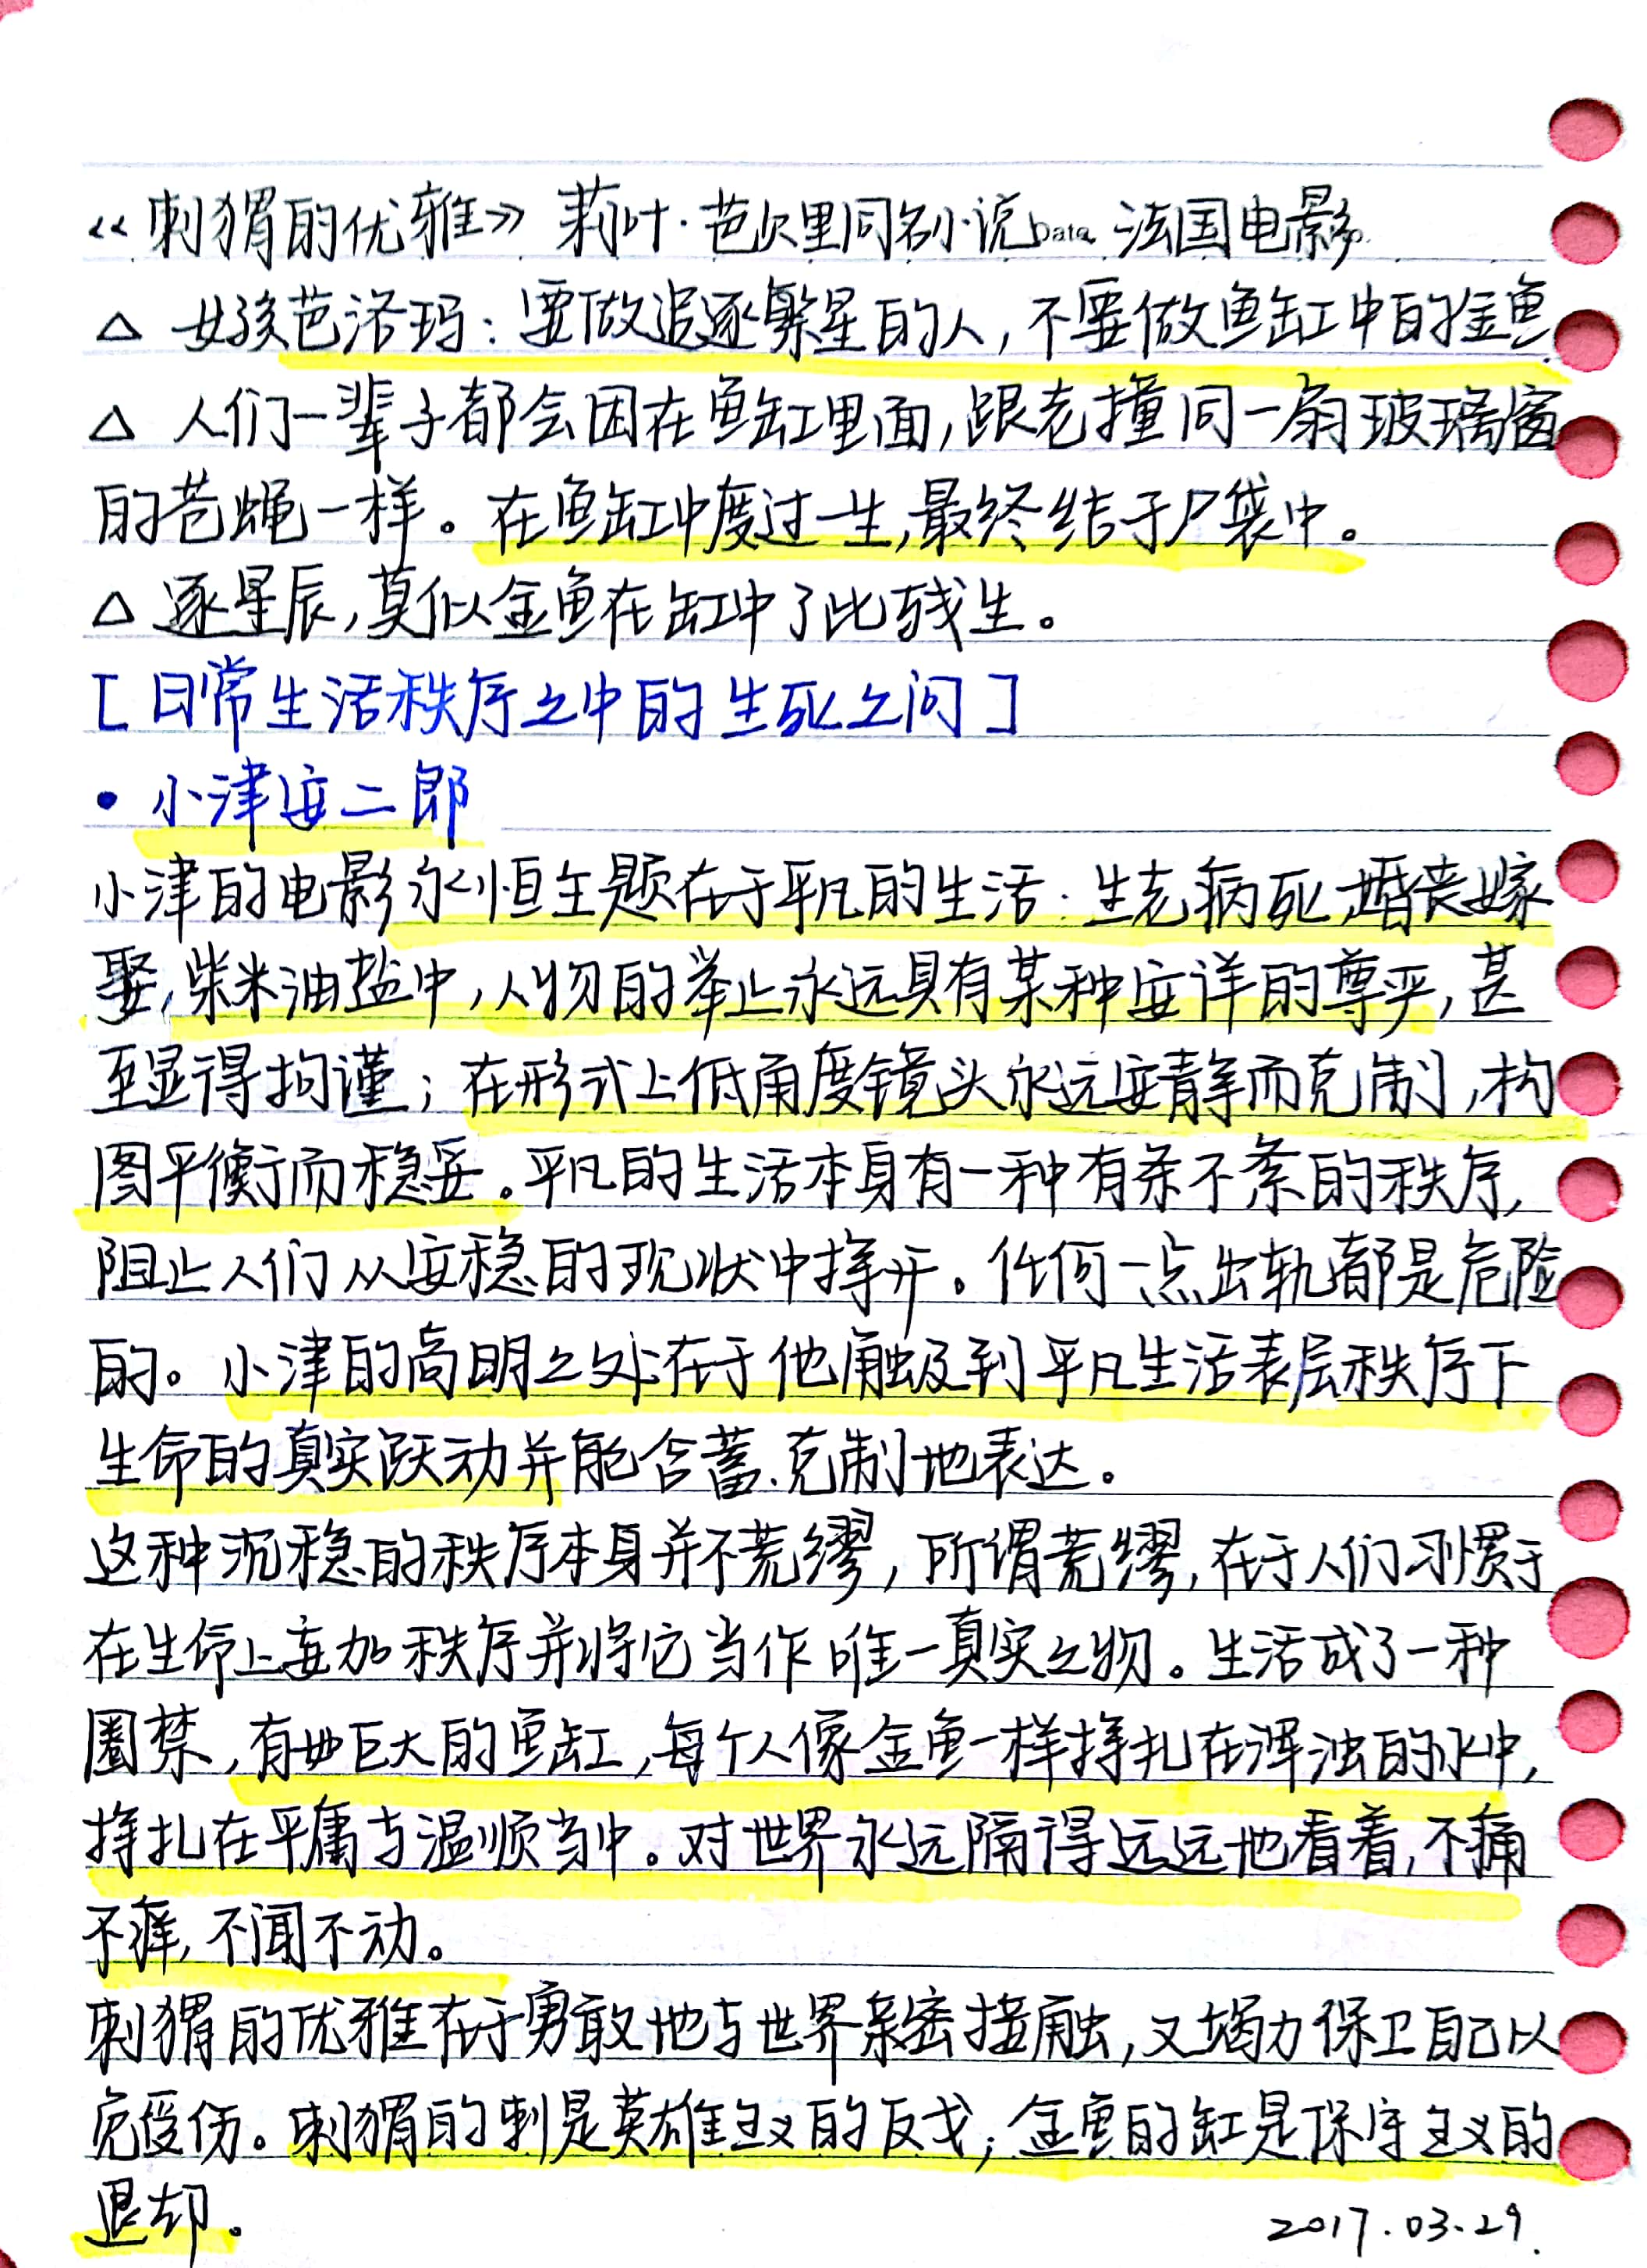 《刺猬的优雅》 莉叶·芭贝里同名小说 Data 法国电影
△ 女孩芭洛玛：要做追逐繁星的人，不要做鱼缸中的金鱼
△ 人们一辈子都会困在鱼缸里面，跟老撞同一扇玻璃窗
的苍蝇一样。在鱼缸中度过一生，最终结于尸袋中。
△ 逐星辰，莫似金鱼在缸中了此残生。
[日常生活秩序之中的生死之问]
• 小津安二郎
小津的电影永恒主题在于平凡的生活：生老病死 婚丧嫁
娶，柴米油盐中，人物的举止永远具有某种安详的尊严，甚
至显得拘谨；在形式上低角度镜头永远安静而克制，构
图平衡而稳妥。平凡的生活本身有一种有条不紊的秩序，
阻止人们从安稳的现状中挣开。任何一点出轨都是危险
的。小津的高明之处在于他触及到平凡生活表层秩序下
生命的真实跃动并能含蓄、克制地表达。
这种沉稳的秩序本身并不荒缪，所谓荒缪，在于人们习惯于
在生命上妄加秩序并将它当作唯一真实之物。生活成了一种
圈禁，有如巨大的鱼缸，每个人像金鱼一样挣扎在浑浊的水中，
挣扎在平庸与温顺当中。对世界永远隔得远远地看着，不痛
不痒，不闻不动。
刺猬的优雅在于勇敢地与世界亲密接触，又竭力保卫自己以
免受伤。刺猬的刺是英雄主义的反戈；金鱼的缸是保守主义的
退却。
2017.03.29.